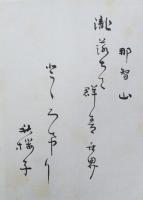 那智山
瀧落ちて群青世界
とゞろけり
秋櫻子